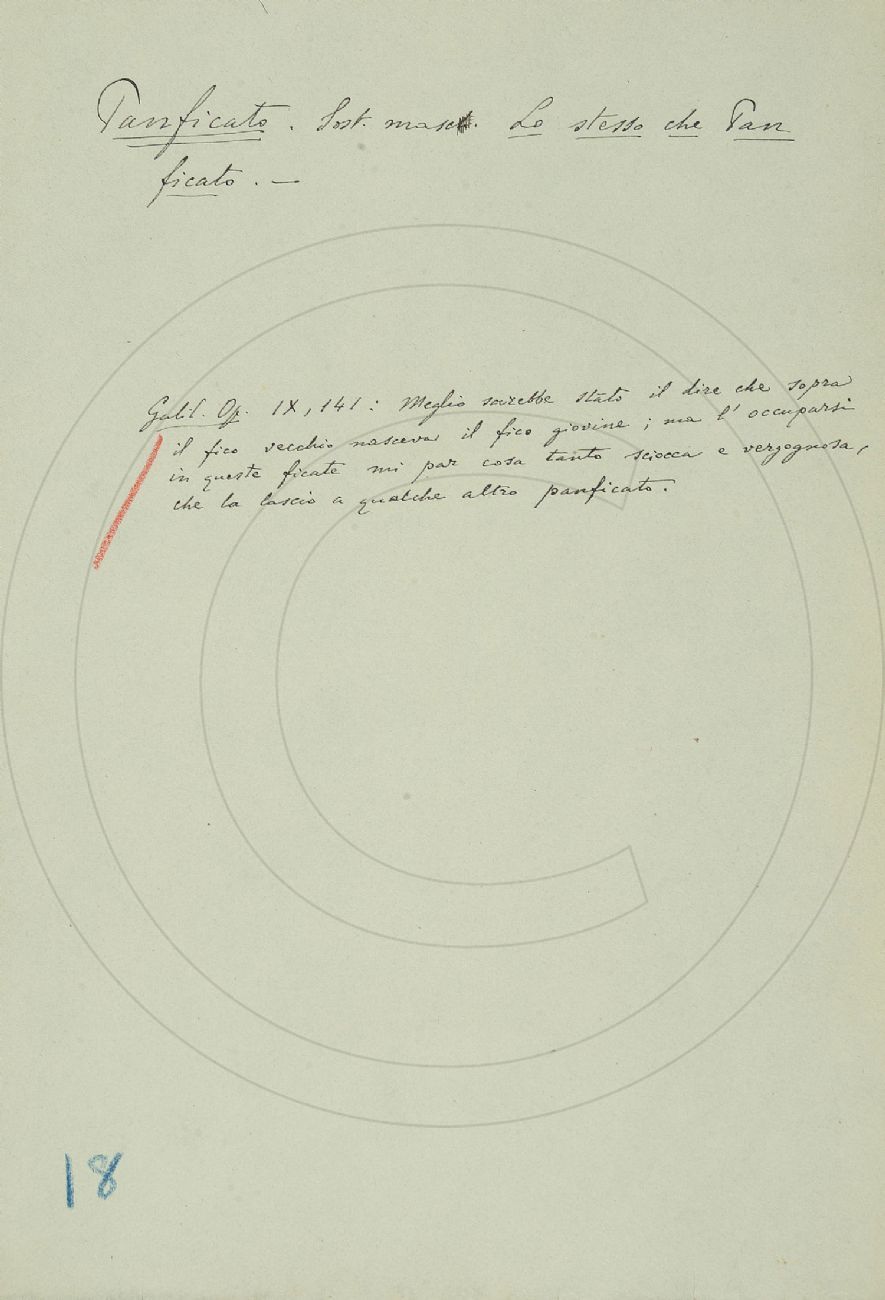 Panficato. Sost. masc. Lo stesso che Pan
ficato. —
Galil. Op. IX, 141: Meglio sarebbe stato il dire che sopra
il fico vecchio nasceva il fico giovine; ma l'occuparsi
in queste ficate mi par cosa tanto sciocca e vergognosa,
che la lascio a qualche altro panficato.
18